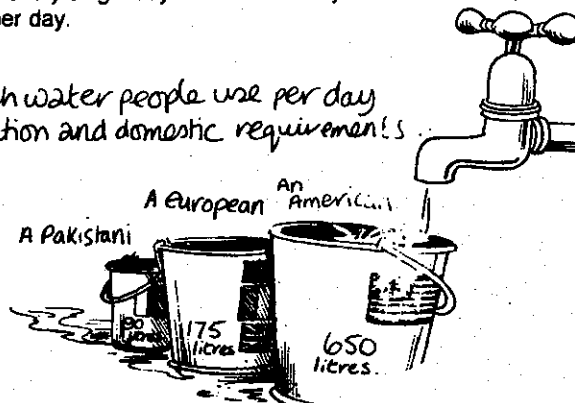 per day.
h water people use per day
tion and domestic requirements...
A Pakistani
A European
An
American
90
litres
175
litres.
650
litres.